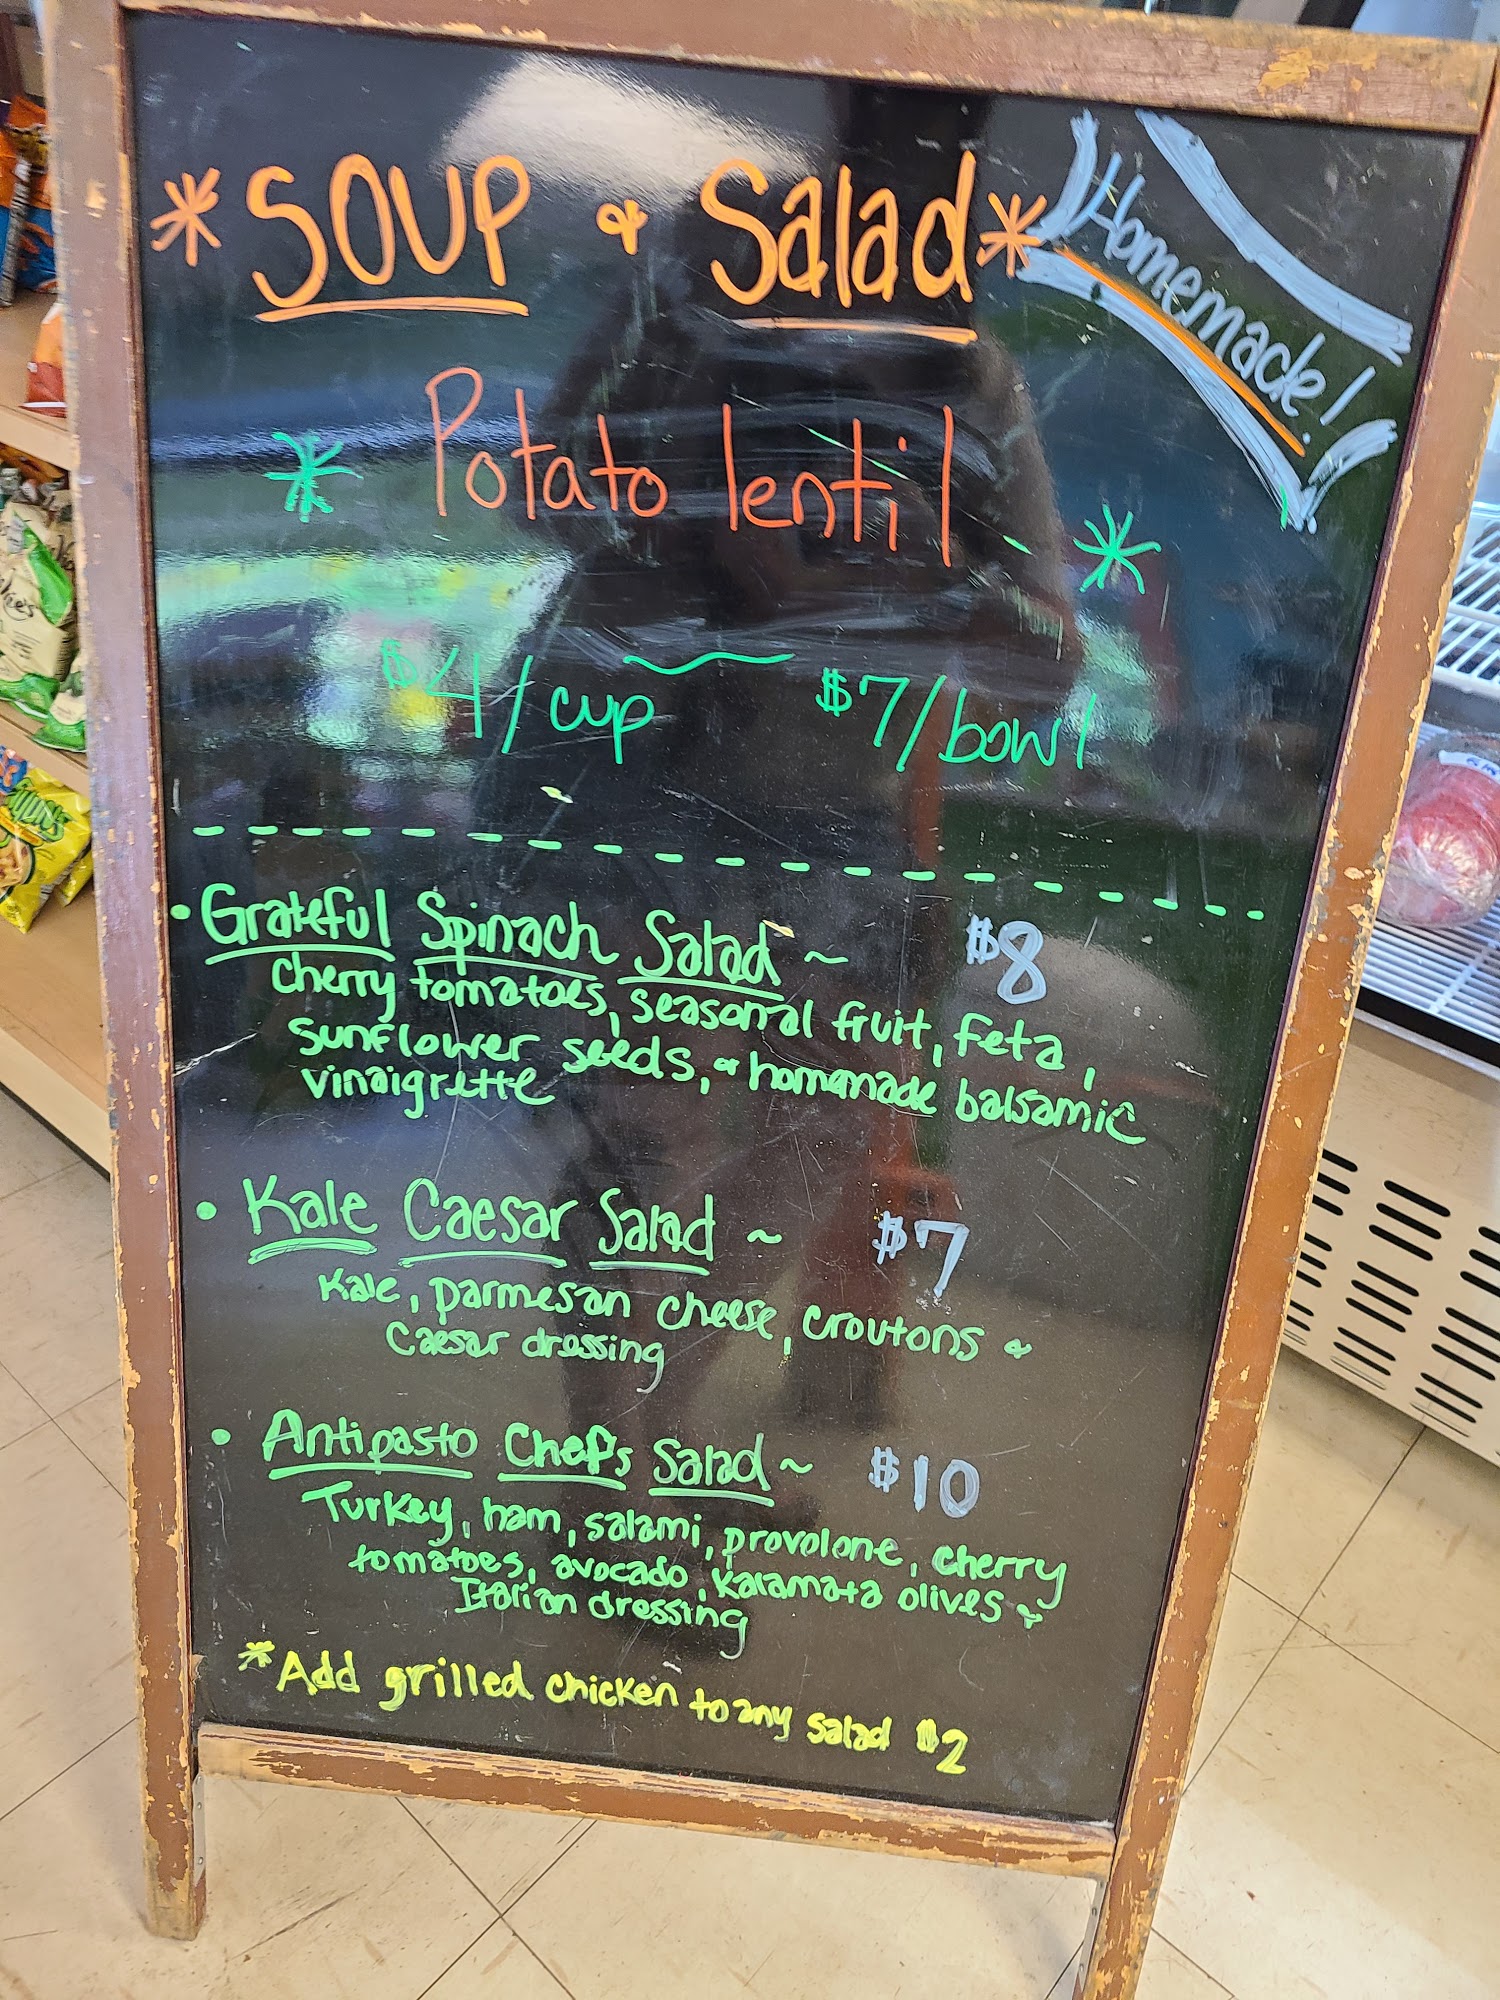 *SOUP & Salad*
Homemade!
* Potato lentil *
$4/cup ~ $7/bowl
• Grateful Spinach Salad ~ $8
cherry tomatoes, seasonal fruit, feta,
sunflower seeds, & homemade balsamic
vinaigrette
• Kale Caesar Salad ~ $7
Kale, parmesan cheese, croutons &
Caesar dressing
• Antipasto Chef's Salad ~ $10
Turkey, ham, salami, provolone, cherry
tomatoes, avocado, kalamata olives &
Italian dressing
*Add grilled chicken to any salad $2